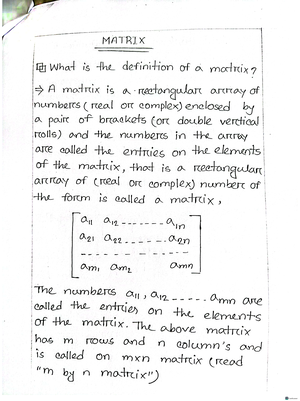 MATRIX
What is the definition of a matrix?
⇒ A matrix is a rectangular array of
numbers (real or complex) enclosed by
a pair of brackets (or double vertical
rolls) and the numbers in the array
are called the entries on the elements
of the matrix, that is a rectangular
array of (real or complex) number of
the form is called a matrix,
a11 a12 ........ a1n
a21 a22 ........ a2n
- - - - - - - - - - - -
am1 am2 amn
The numbers a11, a12 ----- amn are
called the entries on the elements
of the matrix. The above matrix
has m rows and n column's and
is called on mxn matrix (read
"m by n matrix")